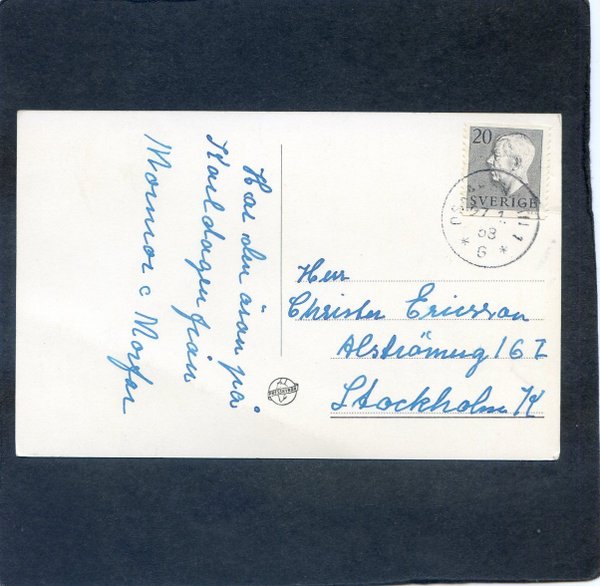 Har den äran på
Karldagen från
Mormor o Morfar
20
SVERIGE
27 1
58
* 6 *
Herr
Christer Ericsson
Alströmerg 16 I
Stockholm K